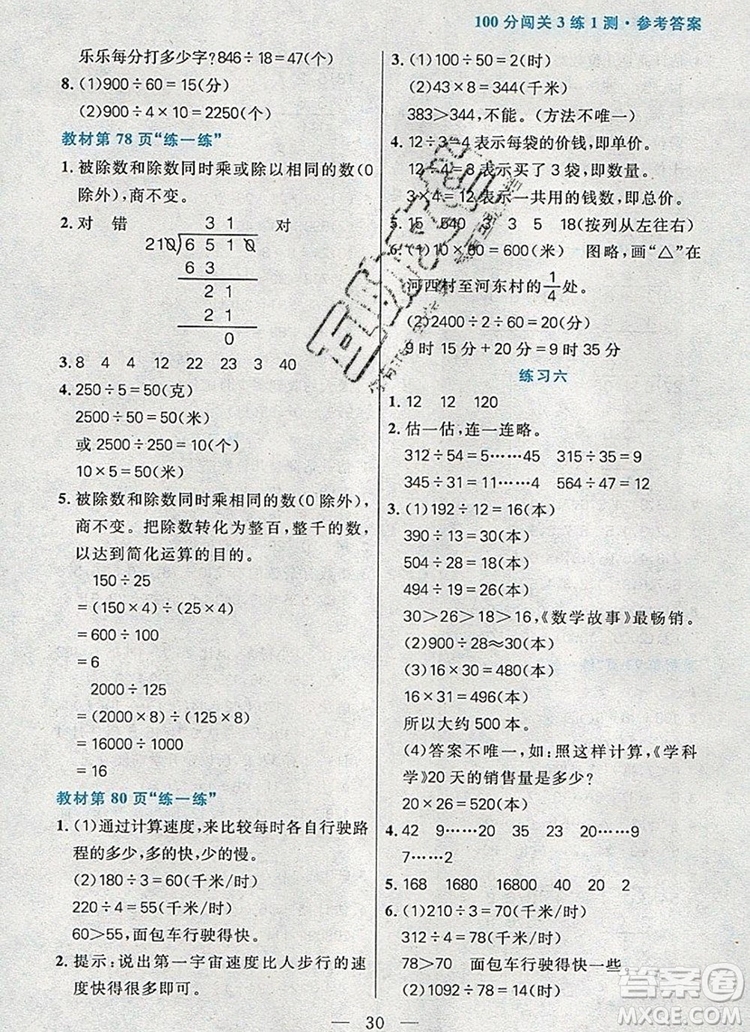 100分闯关3练1测·参考答案
乐乐每分打多少字?846÷18=47(个)
8. (1)900÷60=15(个)
(2)900÷4×10=2250(个)
教材第78页“练一练”
1. 被除数和除数同时乘或除以相同的数(0
除外),商不变。
2. 对 错 对
3 1
210)6510
6 3
2 1
2 1
0
3. 8 4 4 12 22 23 3 40
4. 250÷5=50(克)
2500÷50=50(米)
或 2500÷250=10(个)
10×5=50(米)
5. 被除数和除数同时乘相同的数(0除外),
商不变。把除数转化为整百,整千的数,
以达到简化运算的目的。
150÷25
=(150×4)÷(25×4)
=600÷100
=6
2000÷125
=(2000×8)÷(125×8)
=16000÷1000
=16
教材第80页“练一练”
1. (1)通过计算速度,来比较每时各自行驶路
程的多少,多的快,少的慢。
(2)180÷3=60(千米/时)
220÷4=55(千米/时)
60>55,面包车行驶得快。
2. 提示:说出第一宇宙速度比人步行的速
度快得很多即可。
3. (1)344÷8=43(千米/时)
(2)43×8=344(千米)
383>344,不能。(方法不唯一)
4. 12÷3=4表示每袋的价钱,即单价。
12÷4=3表示买了3袋,即数量。
3×4=12表示一共用的钱数,即总价。
5. 15 540 3 3 5 18(按列从左往右)
6. (1)60×10=600(米) 图略,画“△”在
河西村至河东村的1/4处。
(2)2400÷2÷60=20(分)
9时15分+20分=9时35分
练习六
1. 12 12 120
2. 估一估,连一连略。
312÷54=5……42 315÷35=9
645÷91=7……8 564÷47=12
3. (1)192÷12=16(本)
390÷13=30(本)
504÷28=18(本)
494÷19=26(本)
30>26>18>16,《数学故事》最畅销。
(2)900÷28≈30(本)
(3)16×30=480(本)
16×31=496(本)
所以大约500本。
(4)答案不唯一,如:照这样计算,《学科
学》20天的销售量是多少?
20×26=520(本)
4. 42 9……20 35 23 20……20
7……2
5. 168 1680 16800 21 210 21
6. (1)210÷3=70(千米/时)
312÷4=78(千米/时)
78>70 面包车行驶得快一些
(2)1092÷78=14(时)
30
答案圈
MXQE.COM